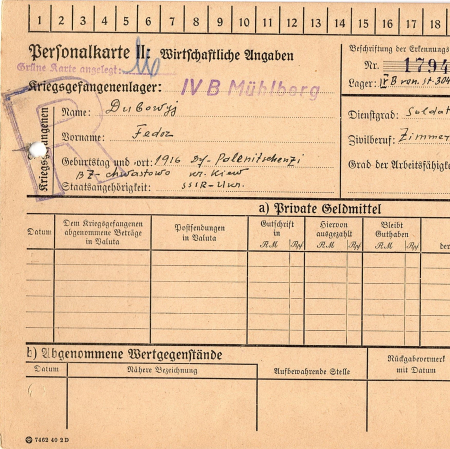 1 2 3 4 5 6 7 8 9 10 11 12 13 14 15 16 17 18
Personalkarte II: Wirtschaftliche Angaben
Grüne Karte angelegt:
Kriegsgefangenenlager: IV B Mühlberg
Name: Dubowyj
Vorname: Fedor
Geburtstag und -ort: 1916 Df-Polenitschenzi
BZ-Chwastowo kr. Kiew
Staatsangehörigkeit: SSSR-Ukr.
Kriegsgefangenen
R
Beschriftung der Erkennungs
Nr. 1794
Lager: IV B von St. 304
Dienstgrad: Soldat
Zivilberuf: Zimmer
Grad der Arbeitsfähigk
a) Private Geldmittel
Datum
Dem Kriegsgefangenen abgenommene Beträge in Valuta
Postsendungen in Valuta
Gutschrift in
RM Rpf
Hiervon ausgezahlt
RM Rpf
Bleibt Guthaben
RM Rpf
der
b) Abgenommene Wertgegenstände
Datum
Nähere Bezeichnung
Aufbewahrende Stelle
Rückgabevermerk mit Datum
7462 40 2 D